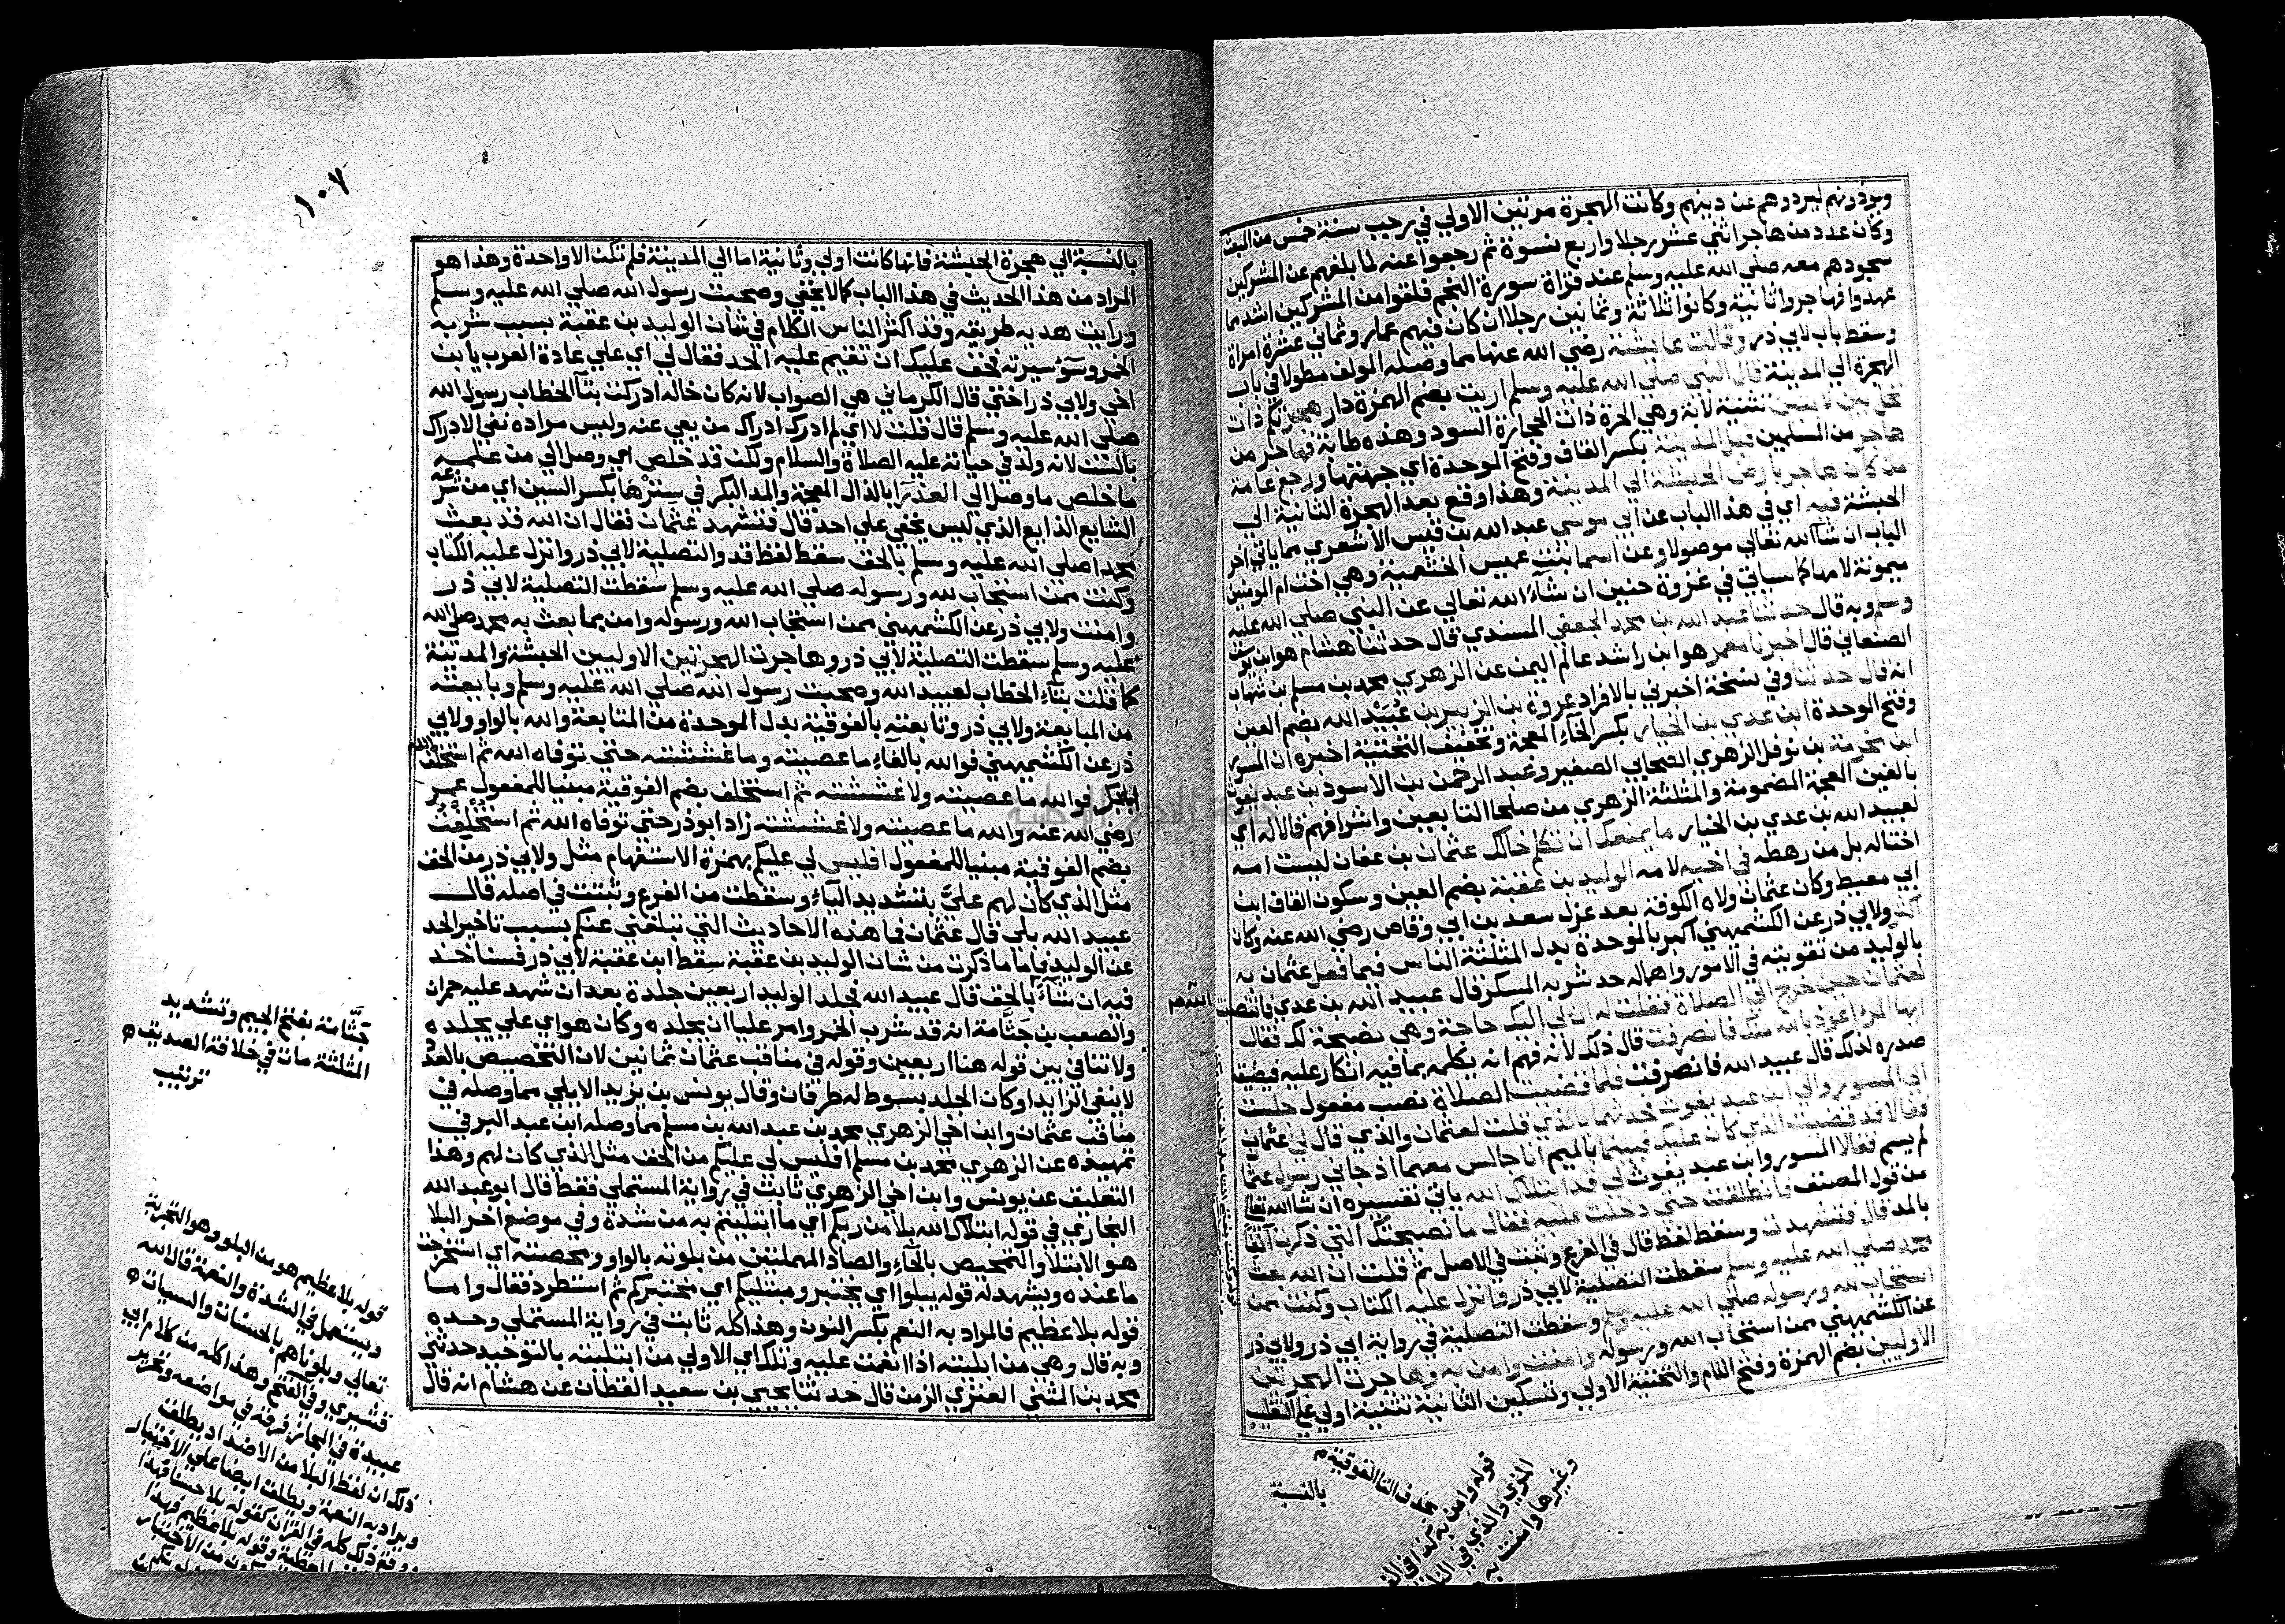 ويؤذونهم ليردوهم عن دينهم وكانت الهجرة مرتين الاولي في رجب سنة خمس من البعث
وكان عدد من هاجر اثني عشر رجلا واربع نسوة ثم رجعوا عنه لما بلغهم عن المشركين
سجودهم معه صلي الله عليه وسلم عند قراة سورة النجم فلقوا من المشركين اشد مما
عهدوا فهاجروا ثانية وكانوا ثلاثة وثمانين رجلا ان كان فيهم عمار وثماني عشرة امراة
وسقط باب لابي ذر وقالت عايشة رضي الله عنها مما وصله المولف مطولا في باب
الهجرة الي المدينة قال النبي صلي الله عليه وسلم اريت بضم الهمزة دار هجرتكم ذات
نخل بين لابتين تثنية لابة وهي الحرة ذات الحجارة السود وهذه طابة فهاجر من
هاجر من المسلمين قبل المدينة بكسر القاف وفتح الموحدة اي جهتها ورجع عامة
من كان هاجر بارض الحبشة الي المدينة وهذا وقع بعد الهجرة الثانية الي
الحبشة فيه اي في هذا الباب عن ابي موسي عبد الله بن قيس الاشعري مما ياتي اخر
الباب ان شآ الله تعالي موصولا وعن اسما بنت عميس الخثعمية وهي اخت ام المومنين
ميمونة لامها كما سياتي في غزوة حنين ان شآء الله تعالي عن النبي صلي الله عليه
وسلم وبه قال حدثنا عبد الله بن محمد الجعفي المسندي قال حدثنا هشام هو ابن يوسف
الصنعاني قال اخبرنا معمر هو ابن راشد عالم اليمن عن الزهري محمد بن مسلم بن شهاب
انه قال حدثنا وفي نسخة اخبرني بالافراد عروة بن الزبير بن عبيد الله بضم العين
وفتح الموحدة ابن عدي بن الخيار بكسر الخاء المعجمة وتخفيف التحتية اخبره ان المسور
ابن مخرمة بن نوفل الزهري الصحابي الصغير وعبد الرحمن بن الاسود بن عبد يغوث
بالغين المعجمة المضمومة والمثلثة الزهري من صلحا التابعين واشرافهم قالا له اي
لعبيد الله بن عدي بن الخيار ما يمنعك ان تكلم خالك عثمان بن عفان ليست امه
اختا له بل من رهطه في اخيه لامه الوليد بن عقبة بضم العين وسكون القاف ابن
ابي معيط وكان عثمان ولاه الكوفة بعد عزل سعد بن ابي وقاص رضي الله عنه وكان
اكثر ولابي ذر عن الكشميهني اكبر بالموحدة بدل المثلثة الناس فيما فعل عثمان به
بالوليد من تقويته في الامور واهماله حد شربه المسكر قال عبيد الله بن عدي فانتصبت
لعثمان حين خرج الي الصلاة فقلت له ان لي اليك حاجة وهي نصيحة لك فقال
ايها المرء اعوذ بالله منك فانصرفت قال ذلك لانه فهم انه يكلمه بما فيه انكار عليه فيضيق
صدره لذلك قال عبيد الله فانصرفت فلما قضيت الصلاة نصب مفعول جلست
الي المسور والي ابن عبد يغوث فحدثتهما بالذي قلت لعثمان والذي قال لي عثمان
فقالا قد قضيت الذي كان عليك فبينما بالميم انا جالس معهما اذ جاني رسول عثمان
لم يسم فقالا المسور وابن عبد يغوث لي قد ابتلاك الله ياتي تفسيره ان شاالله تعالي
من قول المصنف فانطلقت حتي دخلت عليه فقال ما نصيحتك التي ذكرت آنفا
بالمد قال فتشهدت وسقط لفظ قال في الفرع وثبت في الاصل ثم قلت ان الله بعث
محمد صلي الله عليه وسلم سقطت التصلية لابي ذر وانزل عليه الكتاب وكنت ممن
استجاب لله ورسوله صلي الله عليه وسلم وسقطت التصلية في رواية ابي ذر ولابي ذر
عن الكشميهني ممن استجاب الله ورسوله وامنت وامن به وهاجرت الهجرتين
الاوليين بضم الهمزة وفتح اللام والتحتية الاولي وتسكين الثانية تثنية اولي علي التغليب
بالنسبة
بحذف التا الفوقية م
١٠٧
بالنسبة الي هجرة الحبشة فانها كانت اولي وثانية اما الي المدينة فلم تكن الا واحدة وهذا هو
المراد من هذا الحديث في هذا الباب كما لا يخفي وصحبت رسول الله صلي الله عليه وسلم
ورايت هديه طريقه وقد اكثر الناس الكلام في شان الوليد بن عقبة بسبب شربه
الخمر وسوء سيرته فحق عليك ان تقيم عليه الحد فقال لي اي علي عادة العرب يا بن
اخي ولابي ذر اختي قال الكرماني هي الصواب لانه كان خاله ادركت بتآ الخطاب رسول الله
صلي الله عليه وسلم قال قلت لا اي لم ادرك ادراك من يعي عنه وليس مراده نفي الادراك
بالسن لانه ولد في حياته عليه الصلاة والسلام ولكن قد خلص اي وصل الي من علمه
ما خلص ما وصل الي العذرآ بالذال المعجمة والمد البكر في سترها بكسر السين اي من شرعه
الشايع الذايع الذي ليس يخفي علي احد قال فتشهد عثمان فقال ان الله قد بعث
محمدا صلي الله عليه وسلم بالحق سقط لفظ قد والتصلية لابي ذر وانزل عليه الكتاب
وكنت ممن استجاب لله ورسوله صلي الله عليه وسلم سقطت التصلية لابي ذر
وامنت ولابي ذر عن الكشميهني ممن استجاب الله ورسوله وامن بما بعث به محمد صلي الله
عليه وسلم سقطت التصلية لابي ذر وهاجرت الهجرتين الاوليين الحبشة والمدينة
كما قلت بتآء الخطاب لعبيد الله وصحبت رسول الله صلي الله عليه وسلم وبايعته
من المبايعة ولابي ذر وتابعته بالفوقية بدل الموحدة من المتابعة والله بالواو ولابي
ذر عن الكشميهني فوالله بالفاء ما عصيته وما غششته حتي توفاه الله ثم استخلف الله
ابا بكر فوالله ما عصيته ولا غششته ثم استخلف بضم الفوقية مبنيا للمفعول عمر
رضي الله عنه والله ما عصيته ولا غششته زاد ابو ذر حتي توفاه الله ثم استخلفت
بضم الفوقية مبنيا للمفعول افليس لي عليكم بهمزة الاستفهام مثل ولابي ذر من الحق
مثل الذي كان لهم علي بتشديد اليآء وسقطت من الفرع وثبتت في اصله قال
عبيد الله بلي قال عثمان فما هذه الاحاديث التي تبلغني عنكم بسبب تاخير الحد
عن الوليد فاما ما ذكرت من شان الوليد بن عقبة سقط ابن عقبة لابي ذر فسناخذ
فيه ان شآء بالحق قال عبيد الله فجلد الوليد اربعين جلدة بعد ان شهد عليه حمران
والصعب بن جثامة انه قد شرب الخمر وامر عليا ان يجلده وكان هو اي علي يجلده
ولا تنافي بين قوله هنا اربعين وقوله في مناقب عثمان ثمانين لان التخصيص بالعدد
لا ينفي الزايد او كان الجلد بسوط له طرفان وقال يونس بن يزيد الايلي مما وصله في
مناقب عثمان وابن اخي الزهري محمد بن عبد الله بن مسلم مما وصله ابن عبد البر في
تمهيده عن الزهري محمد بن مسلم افليس لي عليكم من الحق مثل الذي كان لهم وهذا
التعليق عن يونس وابن اخي الزهري ثابت في رواية المستملي فقط قال ابو عبد الله
البخاري في قوله ابتلاك الله بلا من ربكم اي ما ابتليتم به من شدة وفي موضع اخر البلا
هو الابتلا والتمحيص بالحآء والصاد المهملتين من بلوته بالواو ومحصته اي استخرجت
ما عنده ويشهد له قوله يبلوا اي يختبر ومبتليكم اي مختبركم ثم استطرد فقال واما
قوله بلا عظيم فالمراد به النعم بكسر النون وهذا كله ثابت في رواية المستملي وحده
وبه قال وهي من ابليته اذا انعمت عليه وتلك اي الاولي من ابتليته بالتوحيد حدثني
محمد بن المثني العنزي الزمن قال حدثنا يحيي بن سعيد القطان عن هشام انه قال
جثامة بفتح الجيم وتشديد
المثلثة مات في خلافة الصديق
ترتيب
قوله بلا عظيم هو من البلو وهو التجربة
ويستعمل في الشدة والنعمة قال الله
تعالي وبلوناهم بالحسنات والسيات
قشيري وفي الفتح وهذا كله من كلام ابي
عبيدة في المجاز فرقه في مواضعه وتحرير
ذلك ان لفظ البلا من الاضداد يطلق
ويراد به النعمة ويطلق ايضا علي الاختبار
ووقع ذلك كله في القران كقوله بلا حسنا فهذا